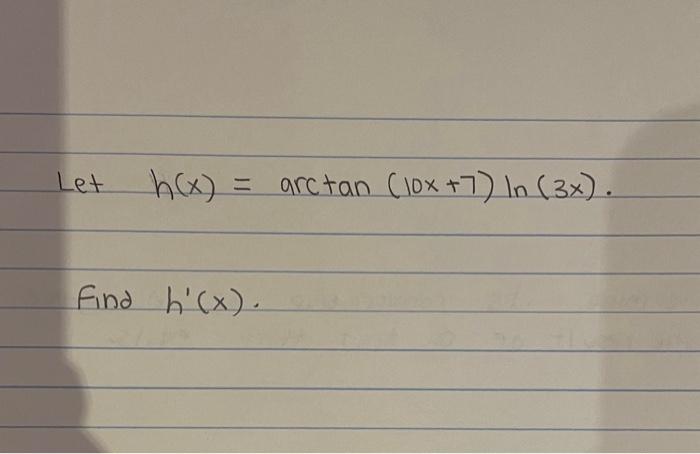 Let h(x) = arctan (10x+7) ln (3x).
Find h'(x).